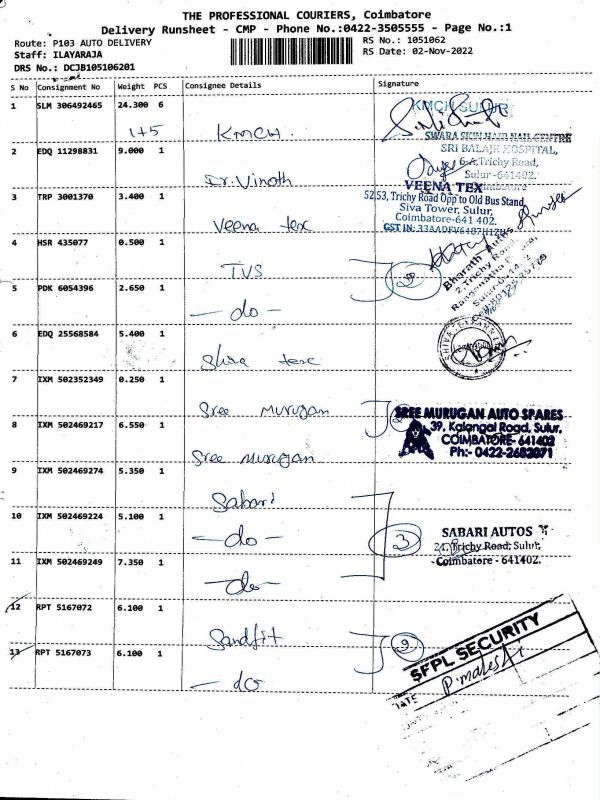 THE PROFESSIONAL COURIERS, Coimbatore
Delivery Runsheet - CMP - Phone No.:0422-3505555 - Page No.:1
Route: P103 AUTO DELIVERY
RS No.: 1051062
Staff: ILAYARAJA
RS Date: 02-Nov-2022
DRS No.: DCJB105106201
S No Consignment No Weight PCS Consignee Details Signature
1 SLM 306492465 24.300 6
1+5 KMCH.
KMCH SULUR
SWARA SKIN HAIR NAIL CENTRE
2 EDQ 11298831 9.000 1
Dr. Vinoth
SRI BALAJI HOSPITAL,
6-A, Trichy Road,
Sulur - 641402.
3 TRP 3001370 3.400 1
Veena tex
VEENA TEX
52,53, Trichy Road Opp to Old Bus Stand,
Siva Tower, Sulur,
Coimbatore-641 402.
GST IN: 33AADFV6487H1ZH
4 HSR 435077 0.500 1
TVS
Bharath Autos
2, Trichy Road,
5 PDK 6054396 2.650 1
- do -
6 EDQ 25568584 5.400 1
Shiva tex
7 IXM 502352349 0.250 1
Sree Murugan
8 IXM 502469217 6.550 1
Sree Murugan
2
SREE MURUGAN AUTO SPARES
39, Kalangal Road, Sulur,
COIMBATORE- 641402
Ph:- 0422-2682071
9 IXM 502469274 5.350 1
Sabari
10 IXM 502469224 5.100 1
- do -
3
SABARI AUTOS
Trichy Road, Sulur,
Coimbatore - 641402.
11 IXM 502469249 7.350 1
- do -
12 RPT 5167072 6.100 1
Sandfit
13 RPT 5167073 6.100 1
- do
SFPL SECURITY
DATE